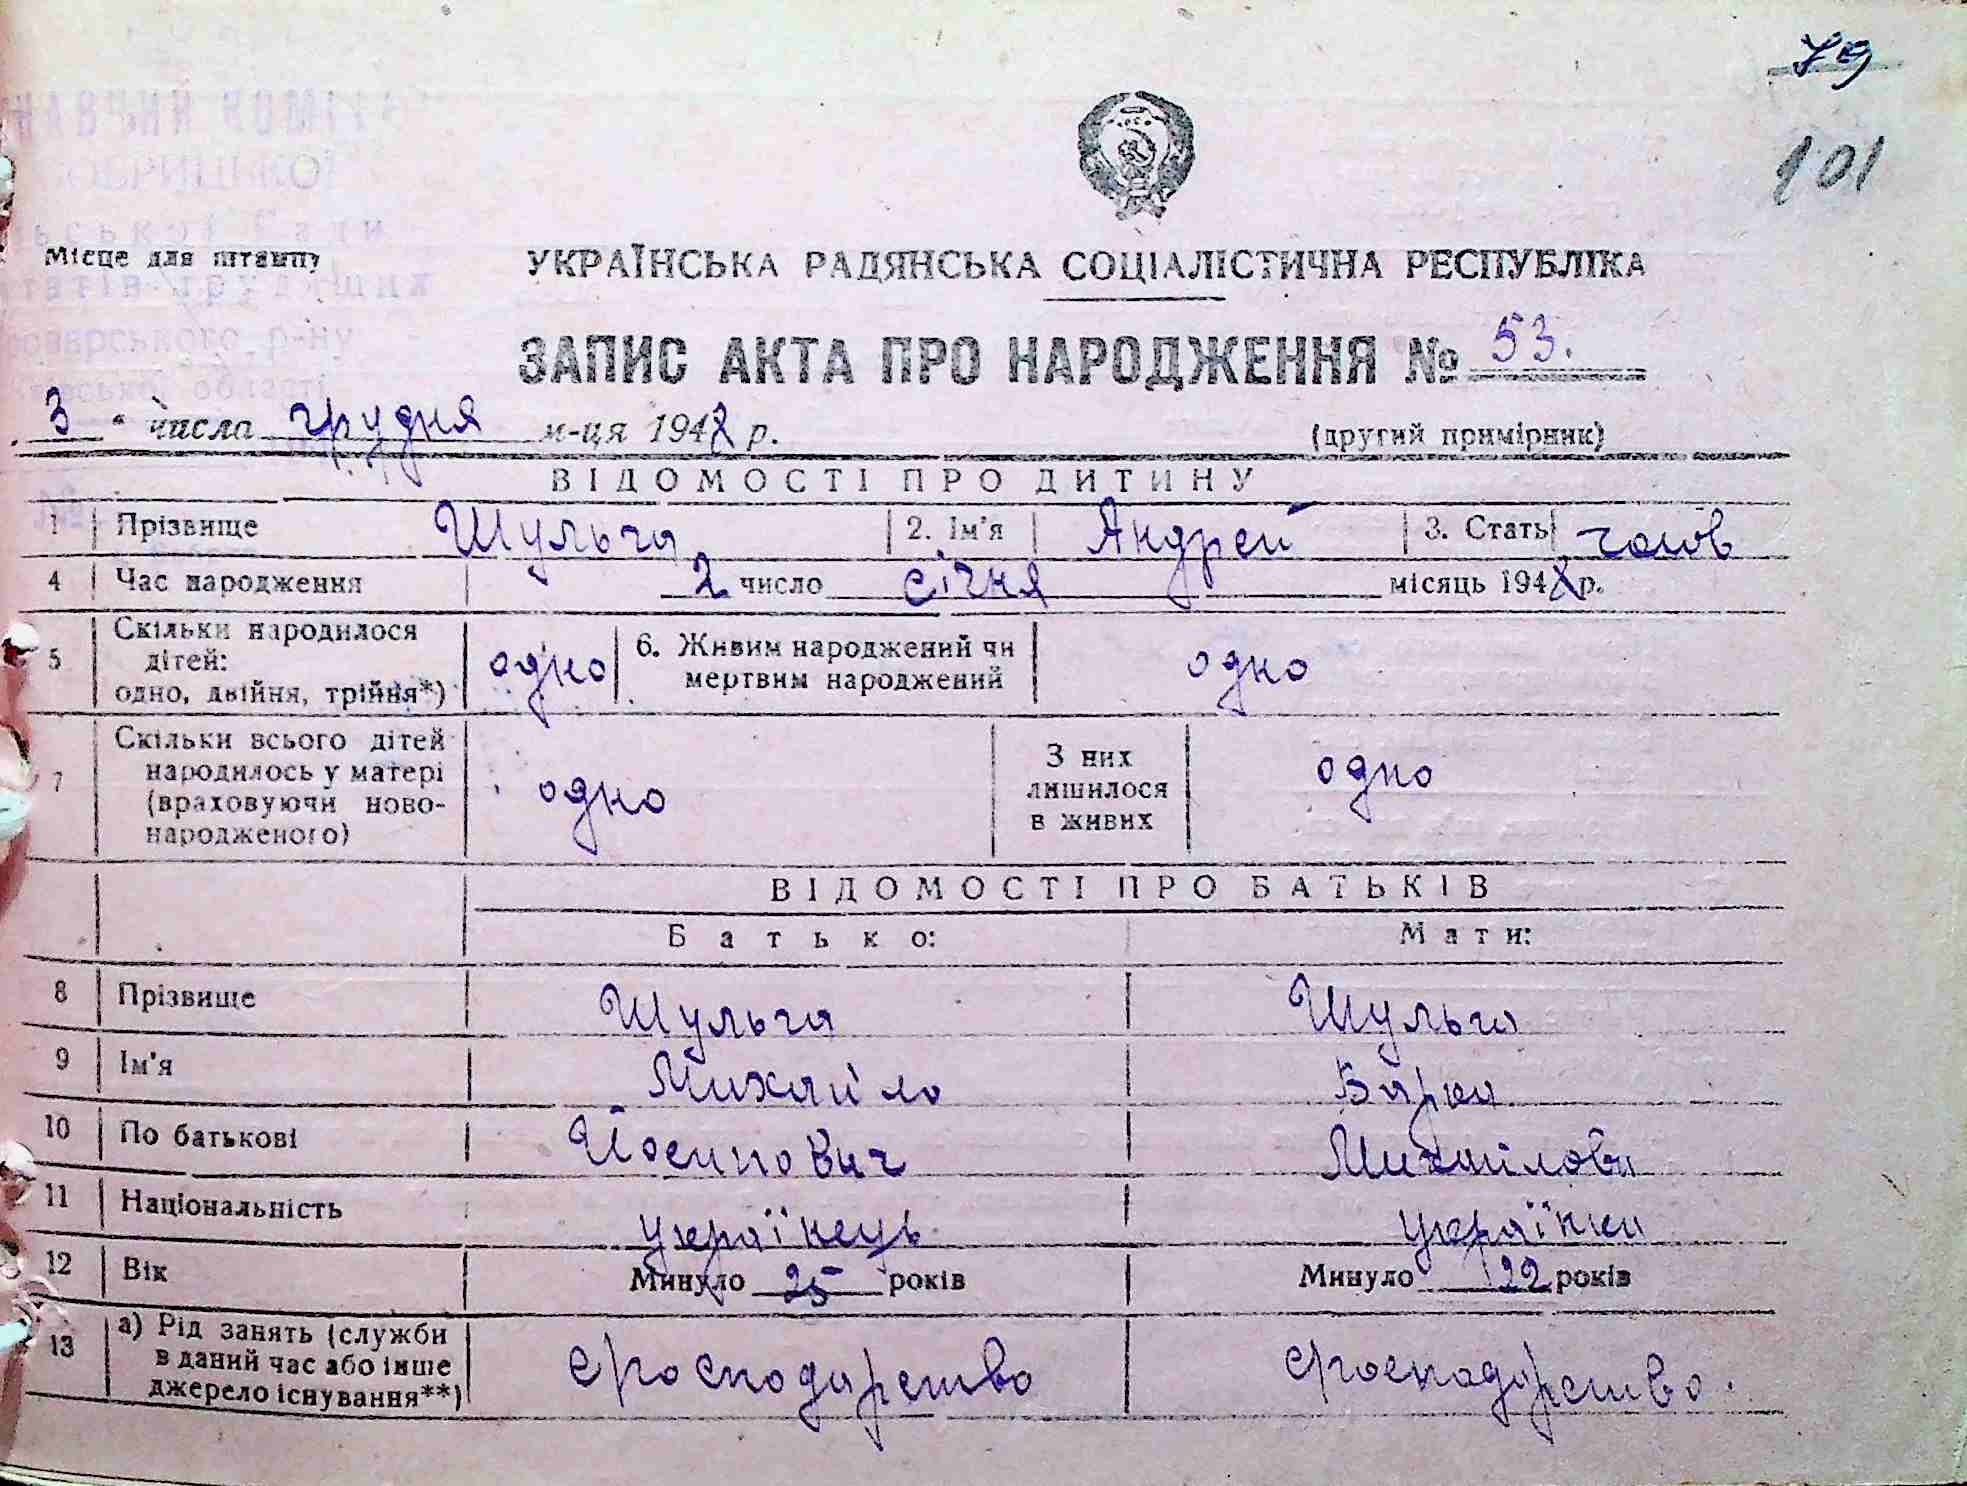 79
101
Місце для штампу
УКРАЇНСЬКА РАДЯНСЬКА СОЦІАЛІСТИЧНА РЕСПУБЛІКА
ЗАПИС АКТА ПРО НАРОДЖЕННЯ № 53.
3 " числа грудня м-ця 194 р.
(другий примірник)
ВІДОМОСТІ ПРО ДИТИНУ
1 Прізвище Шульга 2. Ім'я Андрей 3. Стать чолов
4 Час народження 2 число січня місяць 194 р.
5 Скільки народилося дітей: одно, двійня, трійня*) одно 6. Живим народжений чи мертвим народжений одно
7 Скільки всього дітей народилось у матері (враховуючи ново-народженого) одно З них лишилося в живих одно
ВІДОМОСТІ ПРО БАТЬКІВ
Батько: Мати:
8 Прізвище Шульга Шульга
9 Ім'я Михайло Варка
10 По батькові Йосипович Михайлова
11 Національність українець українка
12 Вік Минуло 25 років Минуло 22 років
13 а) Рід занять (служби в даний час або інше джерело існування**) господарство господарство.